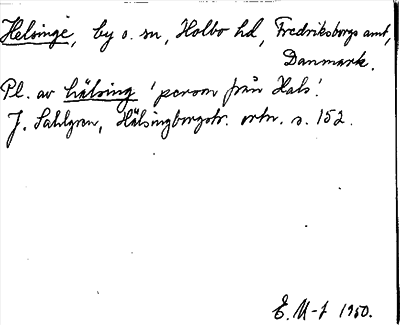 Helsinge, by o. sn, Holbo hd, Fredriksborgs amt,
Danmark.
Pl. av hälsing 'person från Hals'.
J. Sahlgren, Hälsingborgstr. ortn. s. 152.
E. M-t 1950.